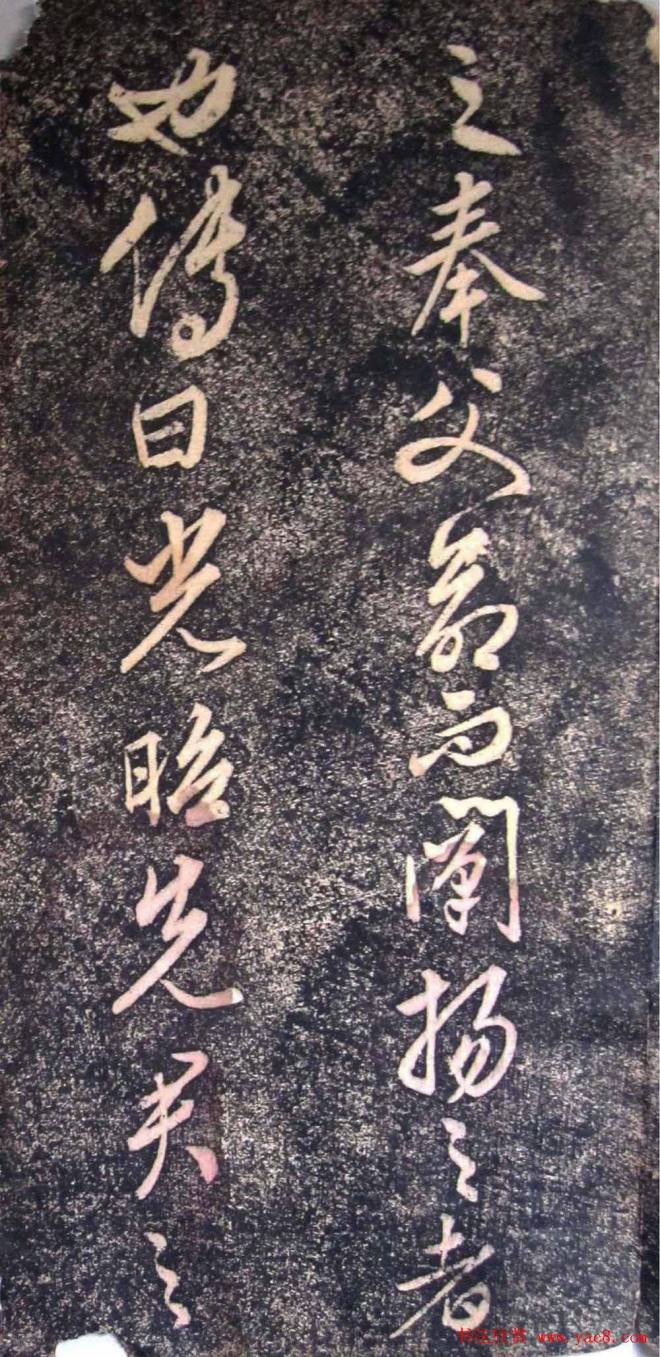 之奉父命而闡揚之者
也傳曰光昭先君之
书法欣赏 www.yac8.com